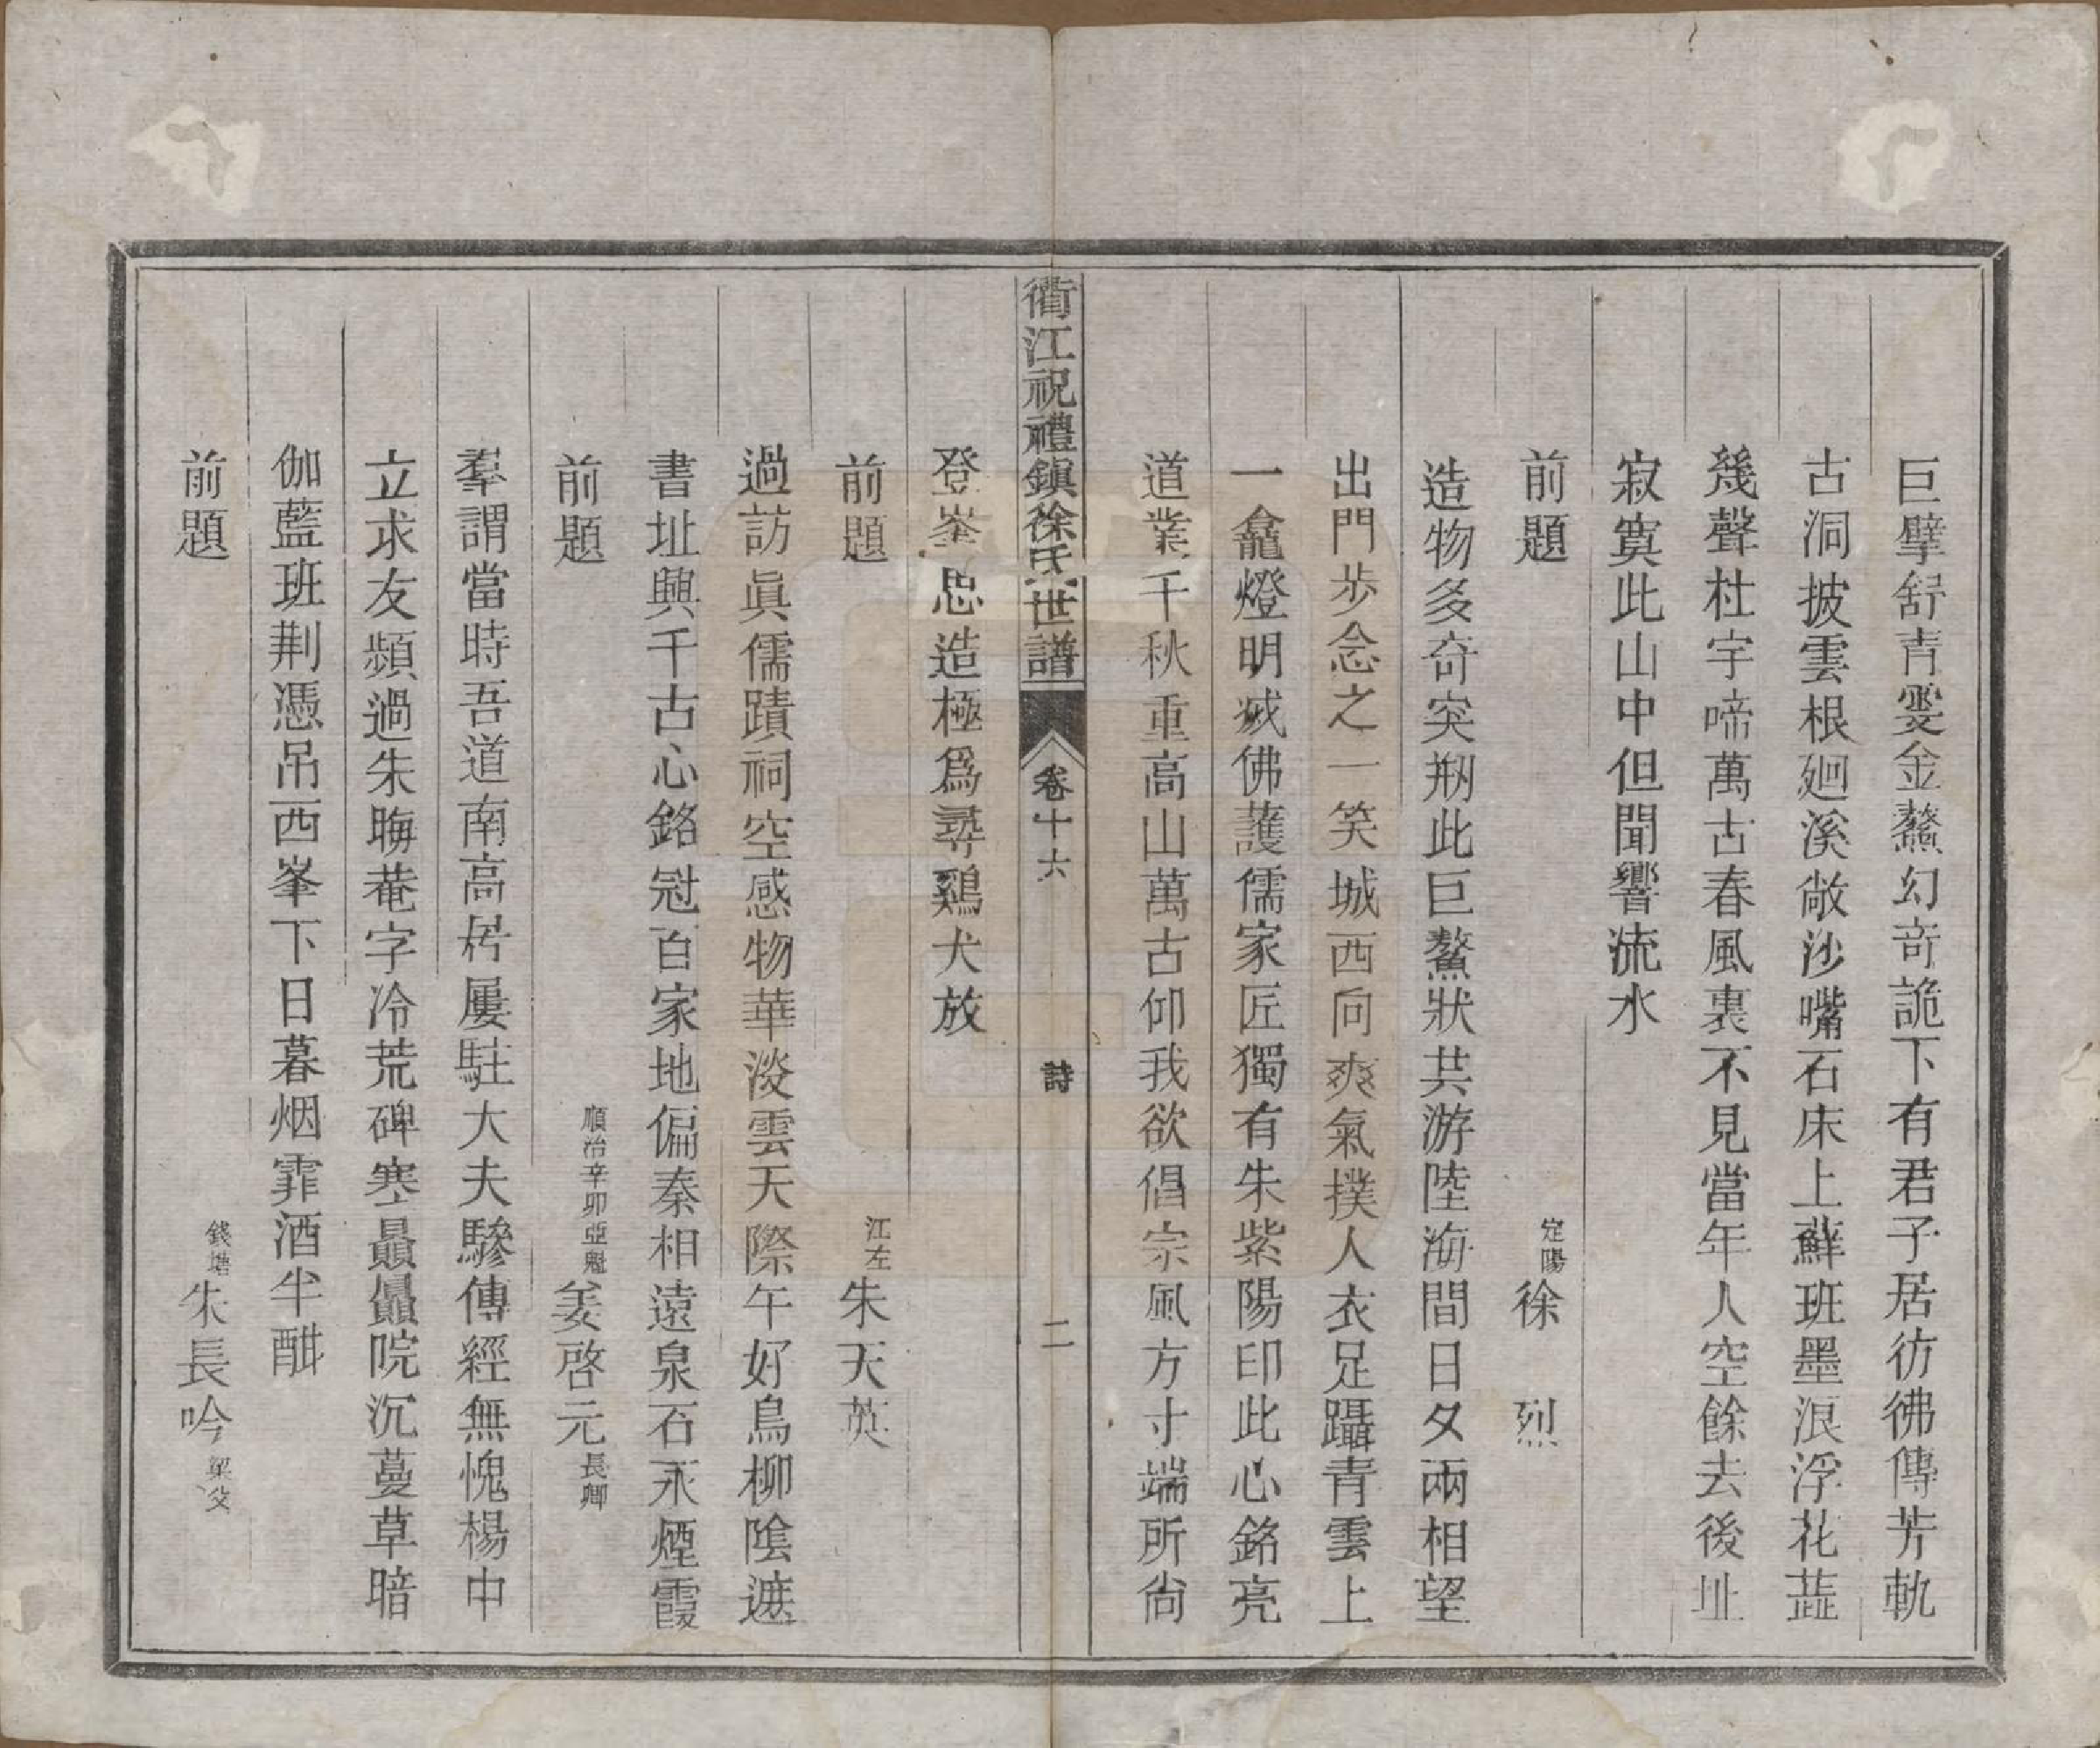 巨擘舒青雯金鰲幻奇詭下有君子居彷彿傳芳軌
古洞披雲根廻溪敞沙嘴石床上蘚班墨浪浮花蕋
幾聲杜宇啼萬古春風裏不見當年人空餘去後址
寂寞此山中但聞響流水
前題 定陽徐 烈
造物多奇突剏此巨鰲狀共游陸海間日夕兩相望
出門步念之一笑城西向爽氣撲人衣足躡青雲上
一龕燈明㓕佛護儒家匠獨有朱紫陽印此心銘亮
道業千秋重高山萬古仰我欲倡宗風方寸端所尙
衢江祝禮鎭徐氏世譜 卷十六 詩 二
登峯思造極爲尋鷄犬放
前題 江左朱天英
過訪眞儒蹟祠空感物華淡雲天際午好鳥柳陰遮
書址興千古心銘冠百家地偏秦相遠泉石永煙霞
前題 順治辛卯亞魁姜啓元長卿
羣謂當時吾道南高居屢駐大夫驂傳經無愧楊中
立求友頻過朱晦菴字冷荒碑寒贔屭院沉蔓草暗
伽藍班荆憑吊西峯下日暮烟霏酒半酣
前題 錢塘朱長吟梁父